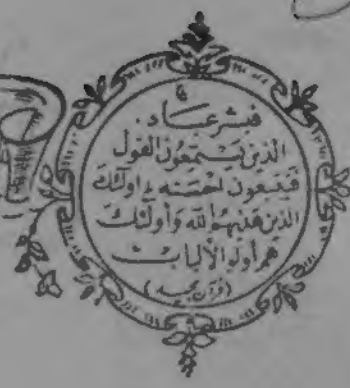 فبشر عباد.
الذين يستمعون القول
فيتبعون احسنه ۚ اولئك
الذين هديهم الله و أولئك
هم أولو الألباب
(قرآن مجيد)